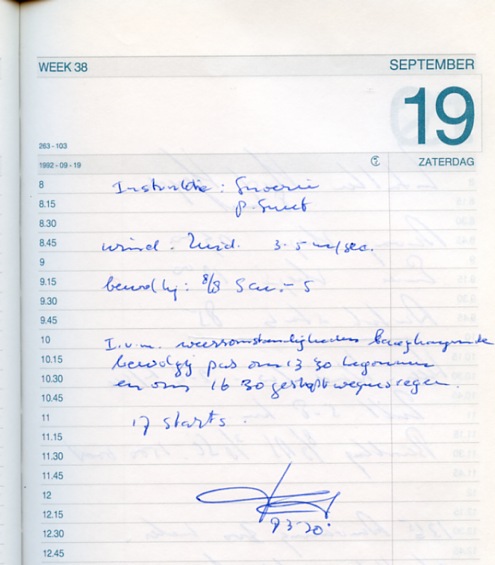 WEEK 38
SEPTEMBER
19
263 - 103
1992 - 09 - 19
ZATERDAG
8
Instruktie :
8.15
P. Smet
8.30
8.45
wind : Zuid. 3.5 m/sec.
9
9.15
bewolkg: 8/8 - 5
9.30
9.45
10
I.v.m. weersomstandigheden laaghangende
10.15
bewolkg pas om 13 30 begonnen
10.30
en om 16 30 gestopt wegens regen.
10.45
11
17 starts.
11.15
11.30
11.45
12
12.15
12.30
12.45